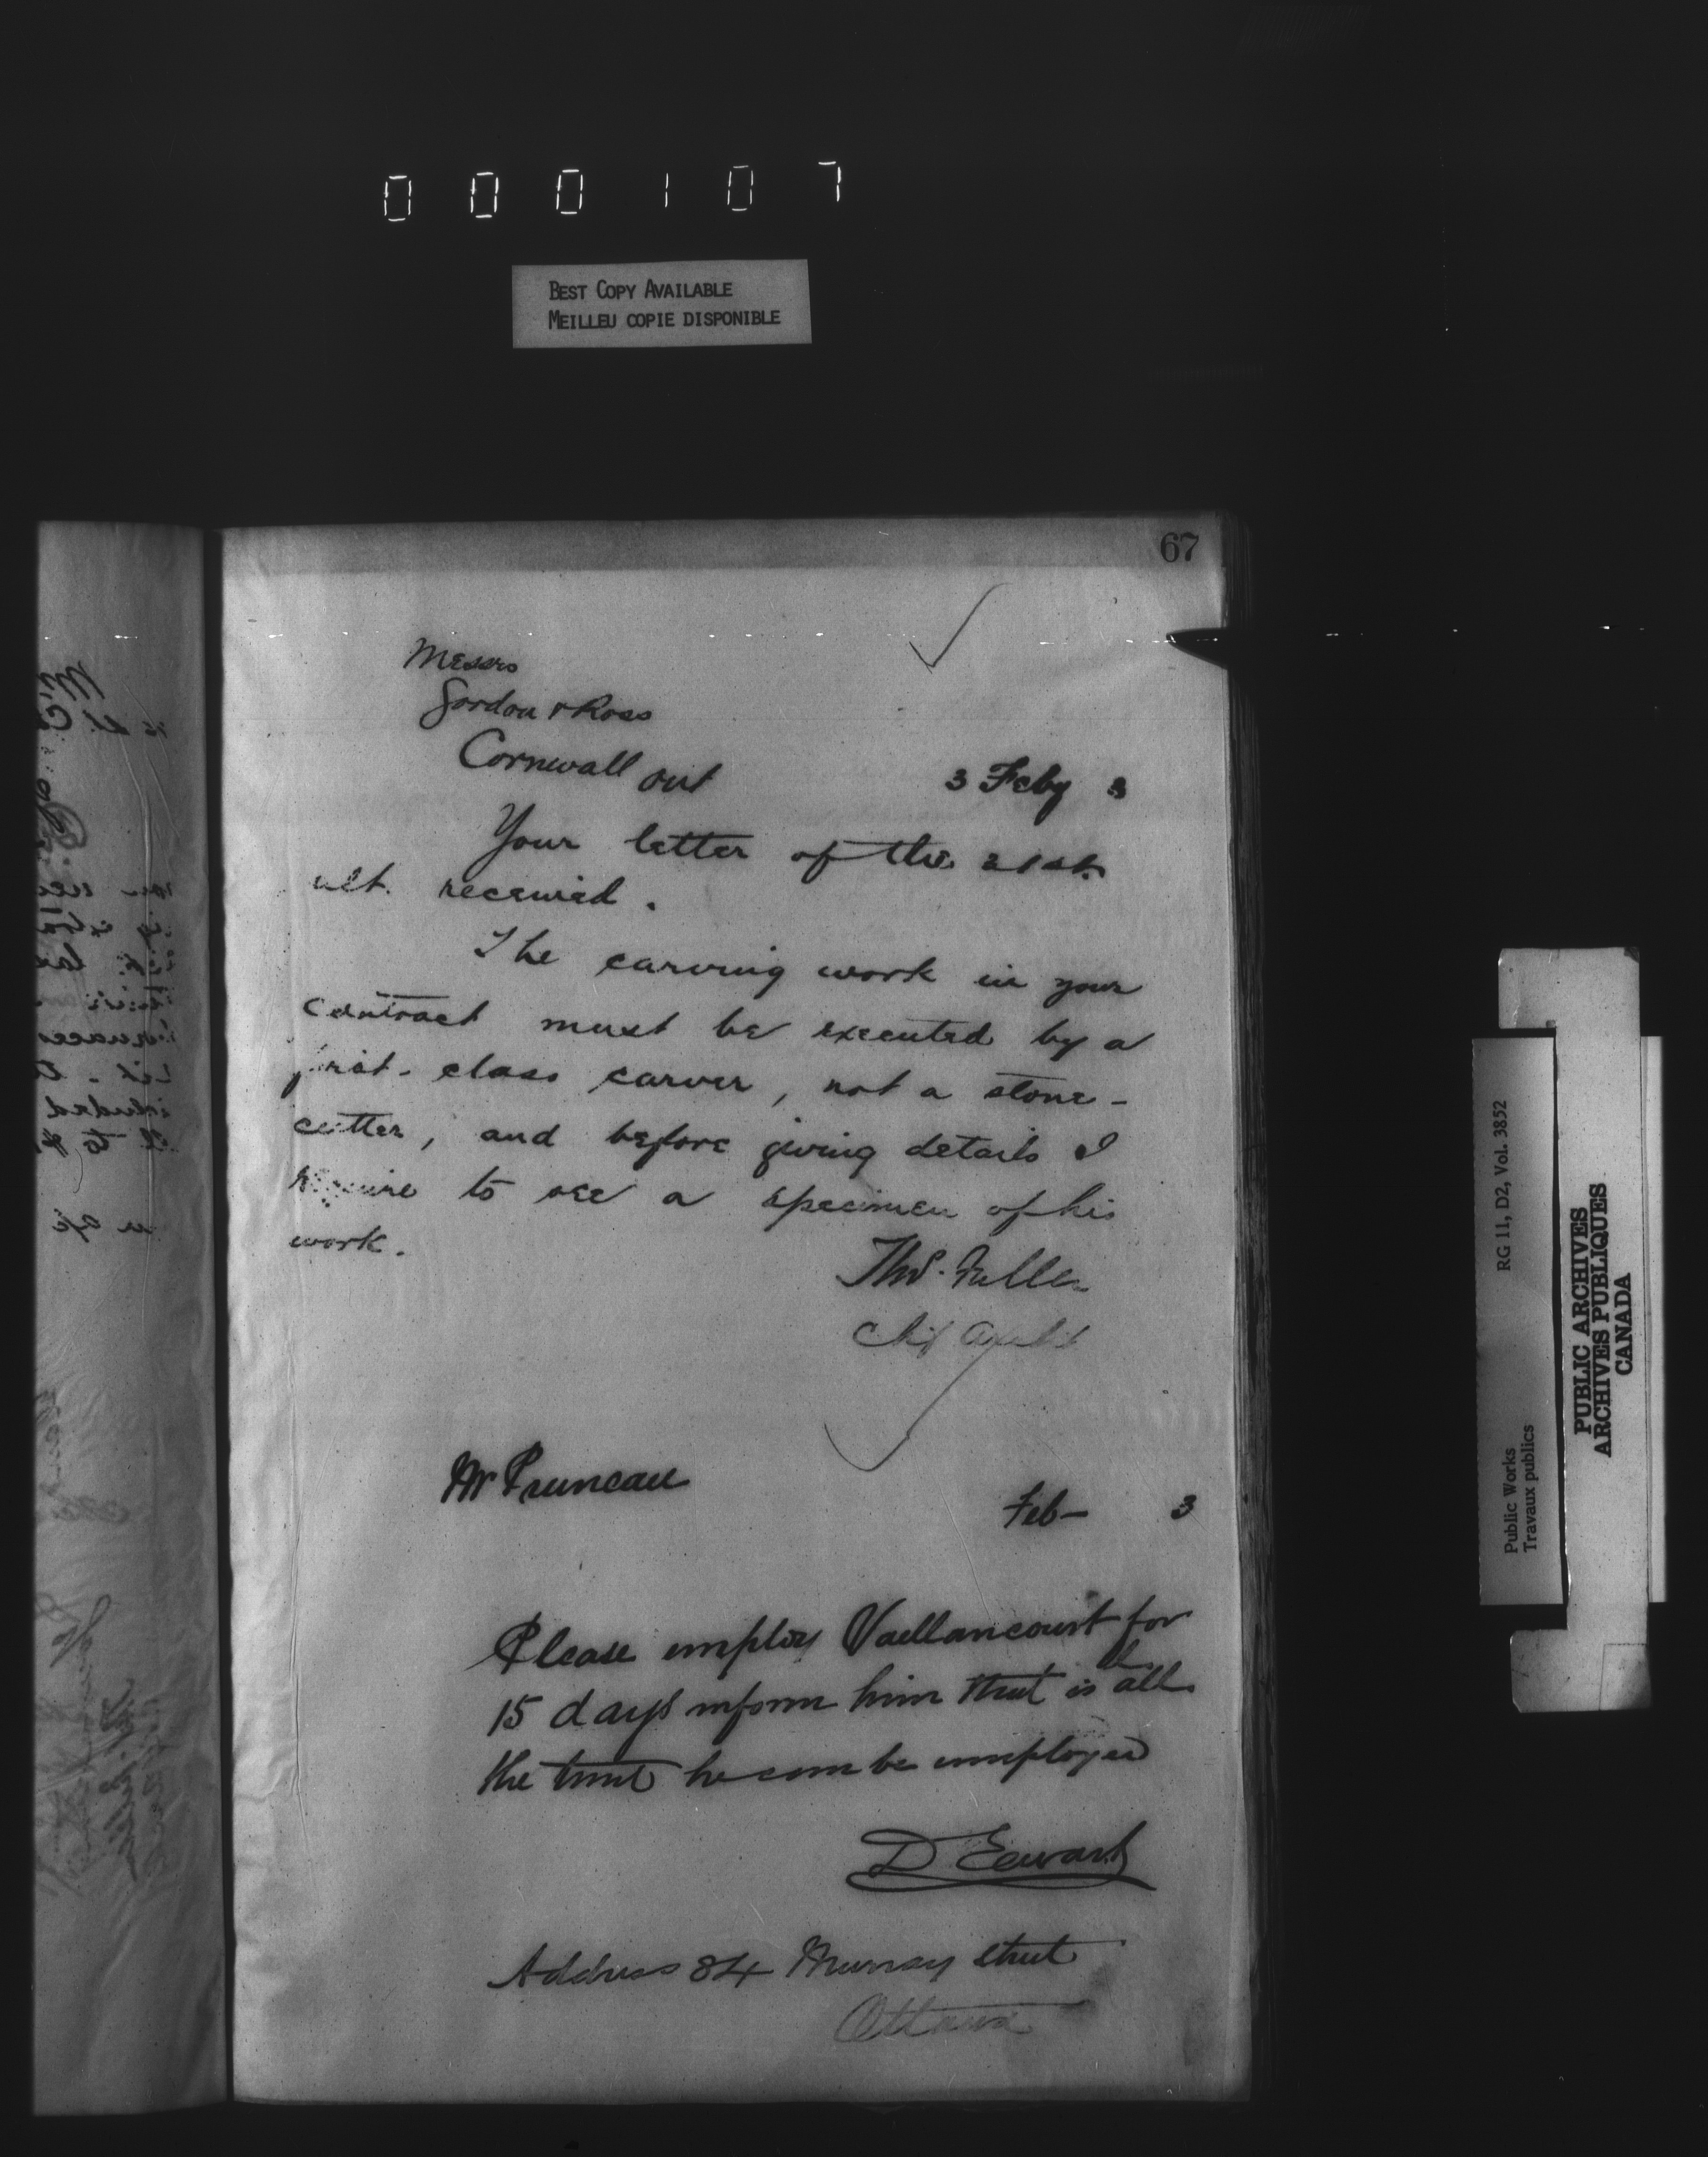 000107
BEST COPY AVAILABLE
MEILLEU COPIE DISPONIBLE
67
Messrs
Gordon & Ross
Cornwall Ont
3 Feby 3
Your letter of the 21st.
ult. received.
The carving work in your
contract must be executed by a
first-class carver, not a stone-
cutter, and before giving details I
require to see a specimen of his
work.
Thos. Fuller
Chf Archt
Mr Pruneau
Feb- 3
Please employ Vaillancourt for
15 days inform him that is all
the time he can be employed
D Ewart
Address 84 Murray Street
Ottawa
RG 11, D2, Vol. 3852
Public Works
Travaux publics
PUBLIC ARCHIVES
ARCHIVES PUBLIQUES
CANADA